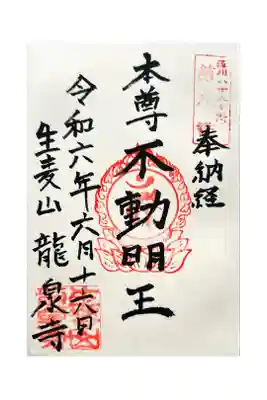 奉納経
本尊 不動明王
令和六年六月十六日
生麦山 龍泉寺